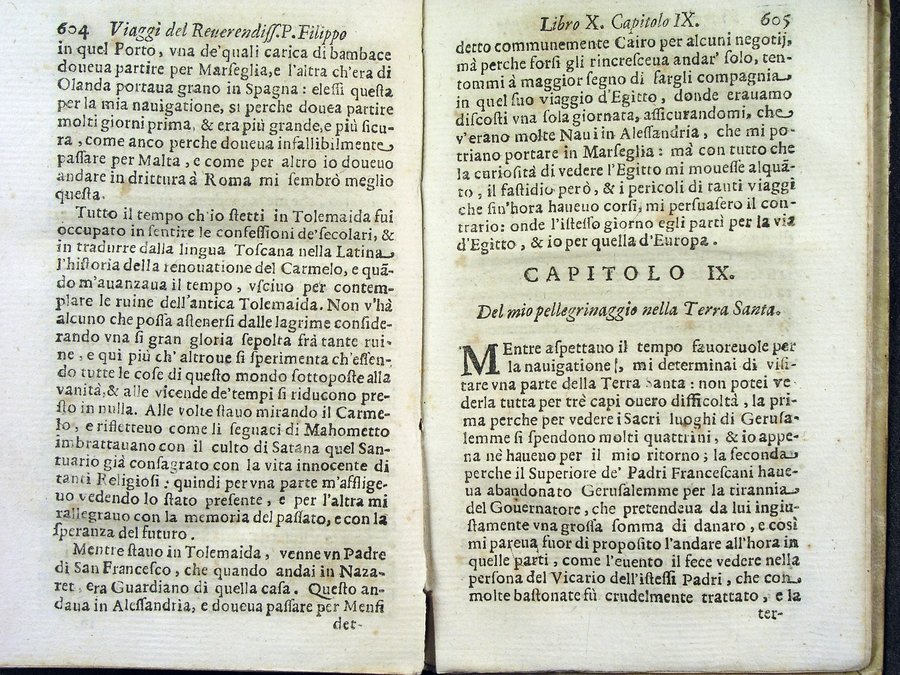 604 Viaggi del Reuerendiss. P. Filippo
in quel Porto, vna de'quali carica di bambace
doueua partire per Marseglia, e l'altra ch'era di
Olanda portaua grano in Spagna: elessi questa
per la mia nauigatione, sì perche douea partire
molti giorni prima, & era più grande, e più sicu-
ra, come anco perche doueua infallibilmente
passare per Malta, e come per altro io doueuo
andare in drittura à Roma mi sembrò meglio
questa.
Tutto il tempo ch'io stetti in Tolemaida fui
occupato in sentire le confessioni de'secolari, &
in tradurre dalla lingua Toscana nella Latina
l'historia della renouatione del Carmelo, e quã-
do m'auanzaua il tempo, vsciuo per contem-
plare le ruine dell'antica Tolemaida. Non v'hà
alcuno che possa astenersi dalle lagrime conside-
rando vna sì gran gloria sepolta frà tante rui-
ne, e qui più ch'altroue si sperimenta ch'essen-
do tutte le cose di questo mondo sottoposte alla
vanità, & alle vicende de'tempi si riducono pre-
sto in nulla. Alle volte stauo mirando il Carme-
lo, e rifletteuo come li seguaci di Mahometto
imbrattauano con il culto di Satana quel San-
tuario già consagrato con la vita innocente di
tanti Religiosi: quindi per vna parte m'afflige-
uo vedendo lo stato presente, e per l'altra mi
rallegrauo con la memoria del passato, e con la
speranza del futuro.
Mentre stauo in Tolemaida, venne vn Padre
di San Francesco, che quando andai in Naza-
ret, era Guardiano di quella casa. Questo an-
daua in Alessandria, e doueua passare per Menfi
det-
Libro X. Capitolo IX. 605
detto communemente Cairo per alcuni negotij,
mà perche forsi gli rincresceua andar' solo, ten-
tommi à maggior segno di fargli compagnia
in quel suo viaggio d'Egitto, donde erauamo
discosti vna sola giornata, assicurandomi, che
v'erano molte Naui in Alessandria, che mi po-
triano portare in Marseglia: mà con tutto che
la curiosità di vedere l'Egitto mi mouesse alquã-
to, il fastidio però, & i pericoli di tanti viaggi
che sin'hora haueuo corsi, mi persuasero il con-
trario: onde l'istesso giorno egli partì per la via
d'Egitto, & io per quella d'Europa.
CAPITOLO IX.
Del mio pellegrinaggio nella Terra Santa.
MEntre aspettauo il tempo fauoreuole per
la nauigatione, mi determinai di visi-
tare vna parte della Terra Santa: non potei ve
derla tutta per trè capi ouero difficoltà, la pri-
ma perche per vedere i Sacri luoghi di Gerusa-
lemme si spendono molti quattrini, & io appe-
na nè haueuo per il mio ritorno; la seconda
perche il Superiore de' Padri Francescani haue-
ua abandonato Gerusalemme per la tirannia
del Gouernatore, che pretendeua da lui ingiu-
stamente vna grossa somma di danaro, e così
mi pareua fuor di proposito l'andare all'hora in
quelle parti, come l'euento il fece vedere nella
persona del Vicario dell'istessi Padri, che con
molte bastonate fù crudelmente trattato, e la
ter-